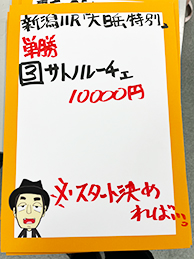 新潟11R「大日岳特別」
単勝
3 サトノルーチェ
10000円
※スタート決め
れば…。